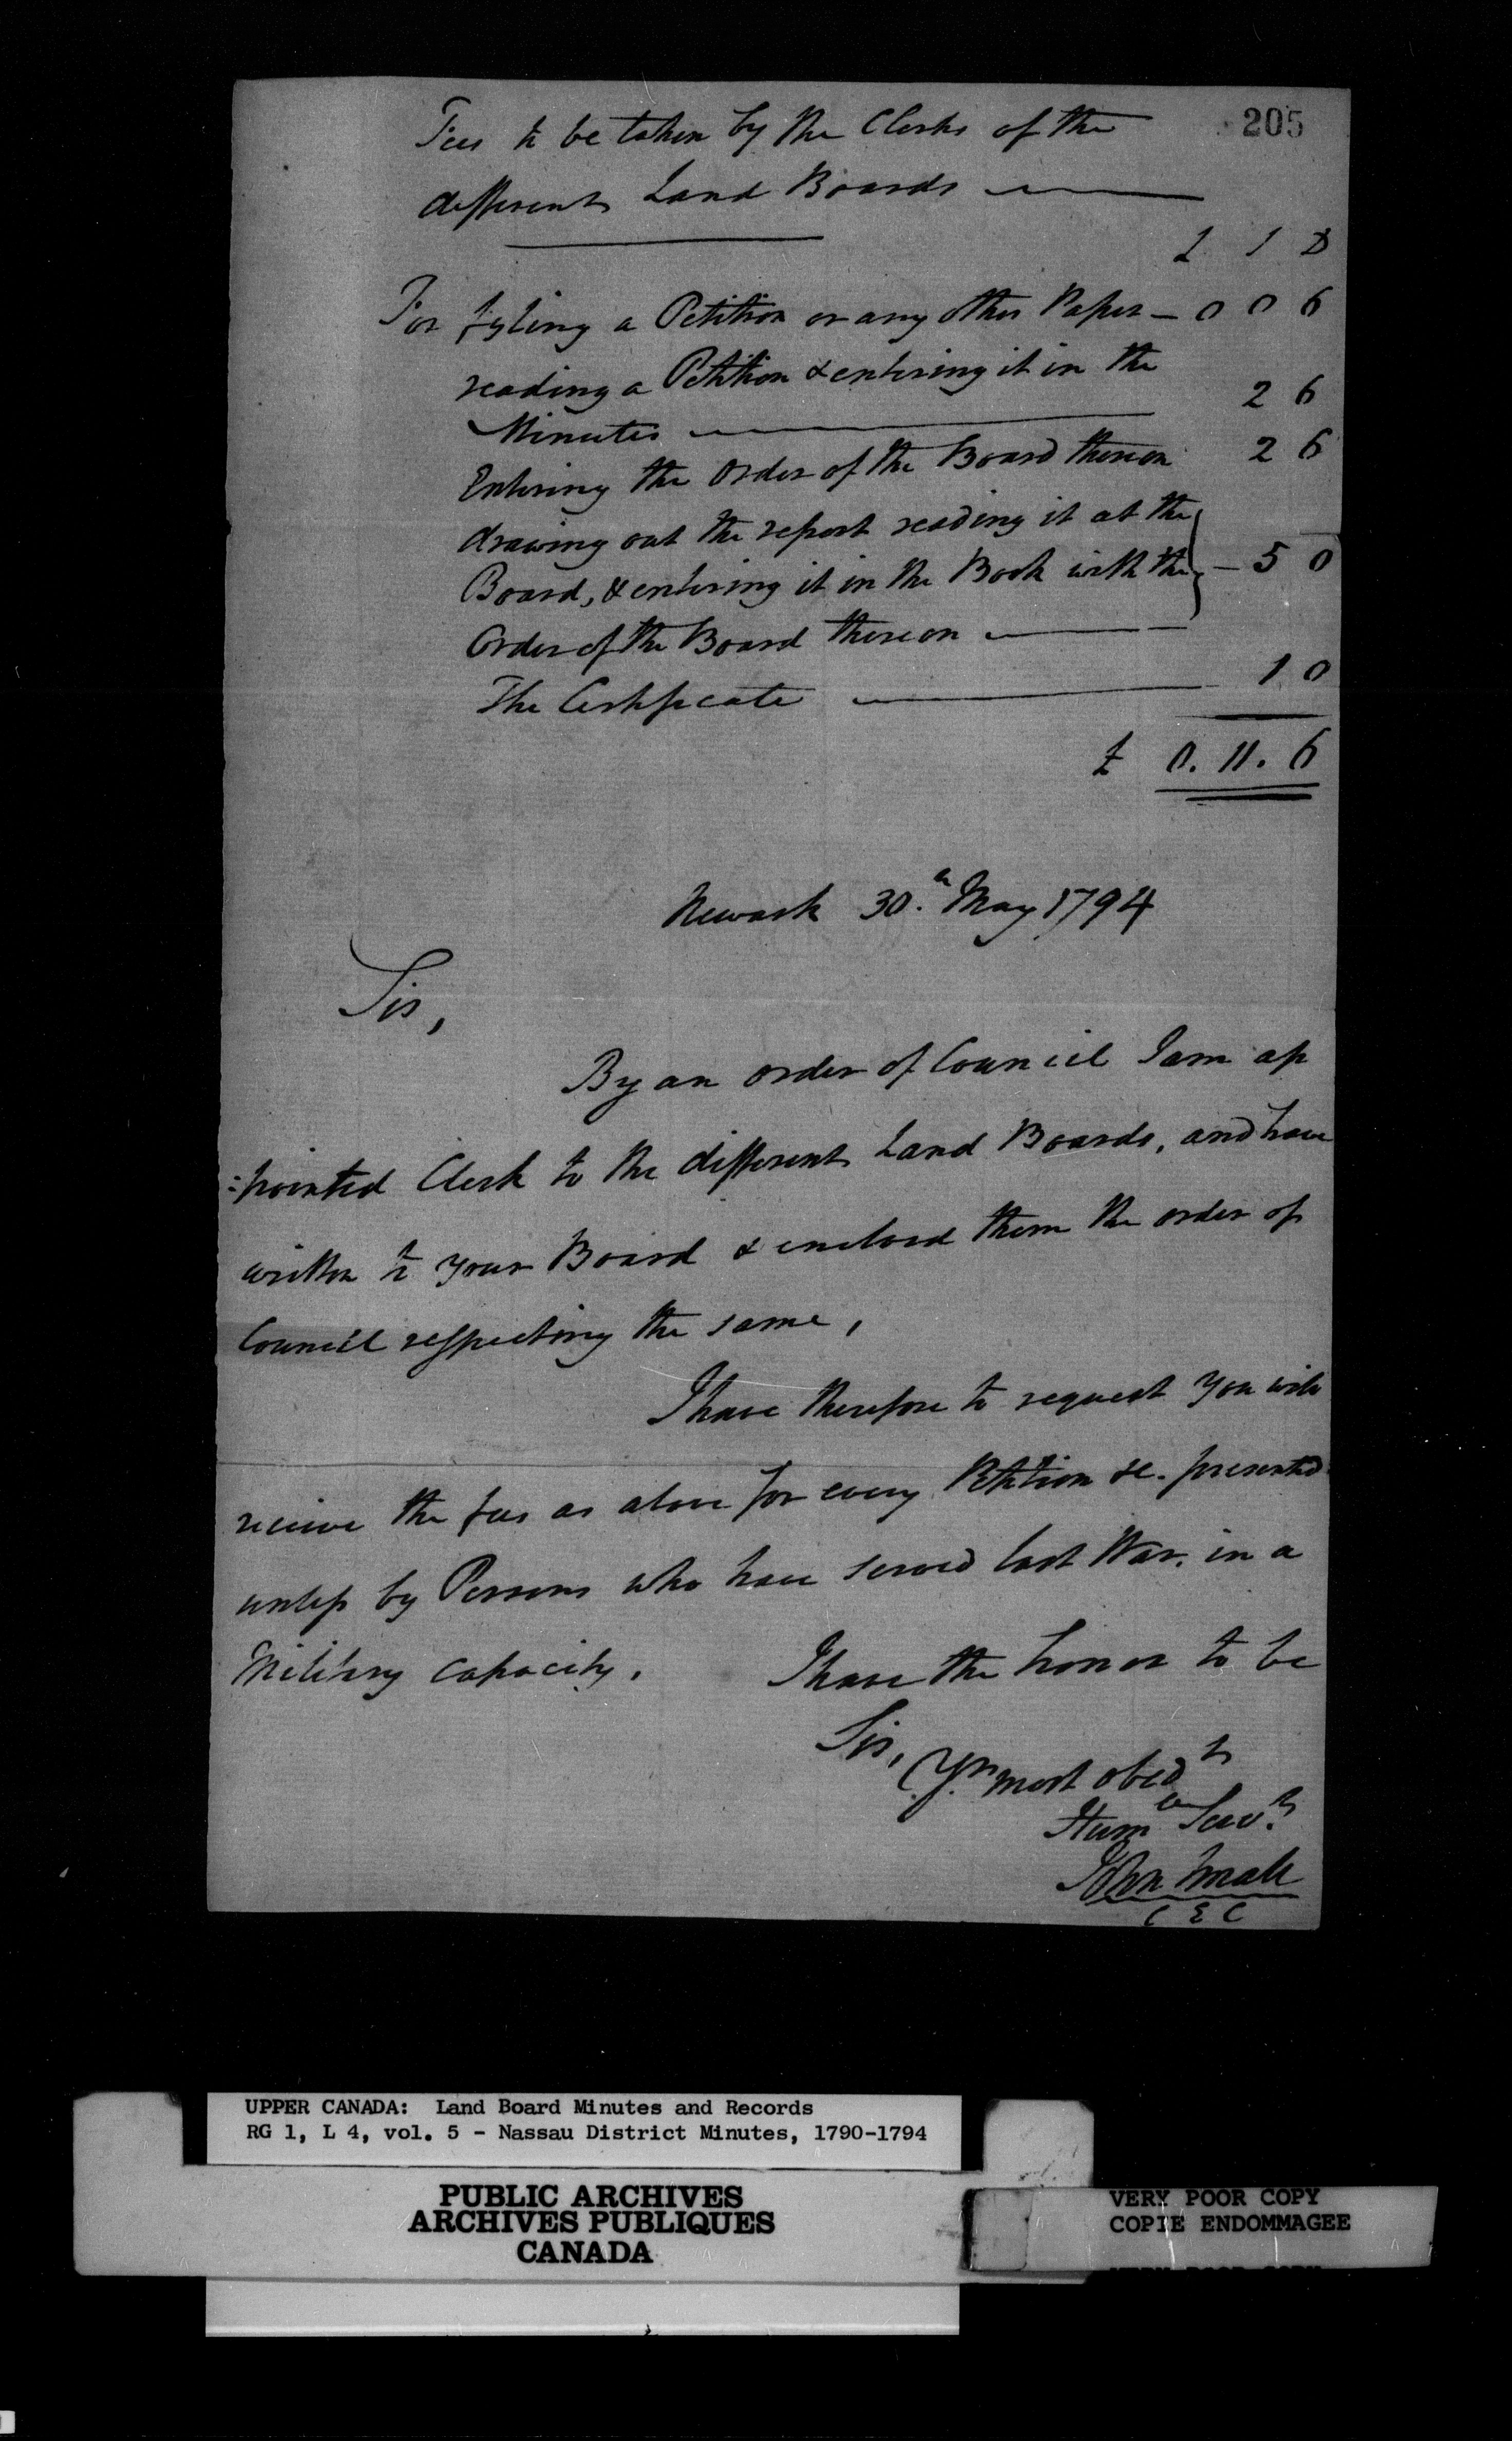 205
Fees to be taken by the Clerks of the
different Land Boards
£ S D
For fyling a Petition or any other Paper - 0 0 6
reading a Petition & entering it in the
Minutes 2 6
Entering the Order of the Board thereon 2 6
drawing out the report reading it at the
Board, & entering it in the Book with the - 5 0
Order of the Board thereon
The Certificate 1 0
£ 0. 11. 6
Newark 30th May 1794
Sir,
By an order of Council I am ap
:pointed Clerk to the different Land Boards, and have
written to your Board & enclosed them the order of
Council respecting the same,
I have therefore to request you will
receive the fees as above for every Petition &c. presented
unless by Persons who have served last War. in a
Military capacity.
I have the honor to be
Sir,
Yr. most obedt
Humle Servt.
John Small
C E C
UPPER CANADA: Land Board Minutes and Records
RG 1, L 4, vol. 5 - Nassau District Minutes, 1790-1794
PUBLIC ARCHIVES
ARCHIVES PUBLIQUES
CANADA
VERY POOR COPY
COPIE ENDOMMAGEE